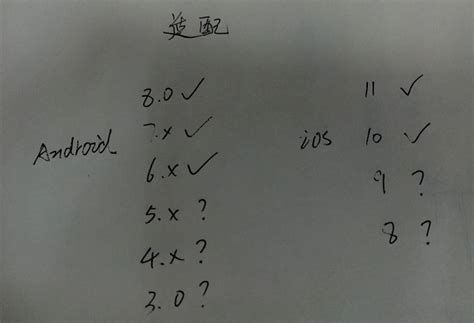 适配
8.0 ✓
7.x ✓
Android 6.x ✓
5.x ?
4.x ?
3.0 ?
11 ✓
iOS 10 ✓
9 ?
8 ?